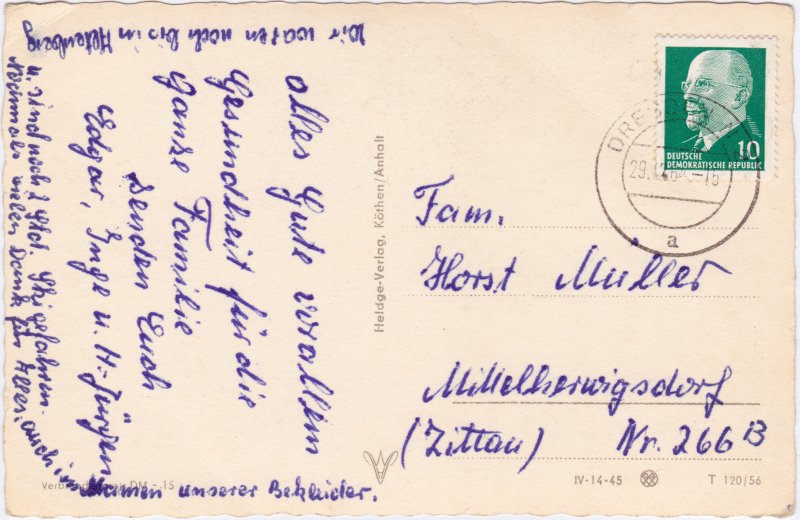 alles Gute vor allem
Gesundheit für die
Ganze Familie
senden Euch
Edgar, Inge u. H-Jürgen
Wir waren noch bis in Altenberg
u. sind noch 2 Std. Ski gefahren.
Nochmals vielen Dank für Alles, auch im
Namen unserer Bekleider.
Verbraucherpreis DM -.15
Heldge-Verlag, Köthen/Anhalt
DEUTSCHE
DEMOKRATISCHE REPUBLIK
10
DRESDEN
a
Fam.
Horst Müller
Mittelherwigsdorf
(Zittau) Nr. 266 B
IV-14-45
T 120/56